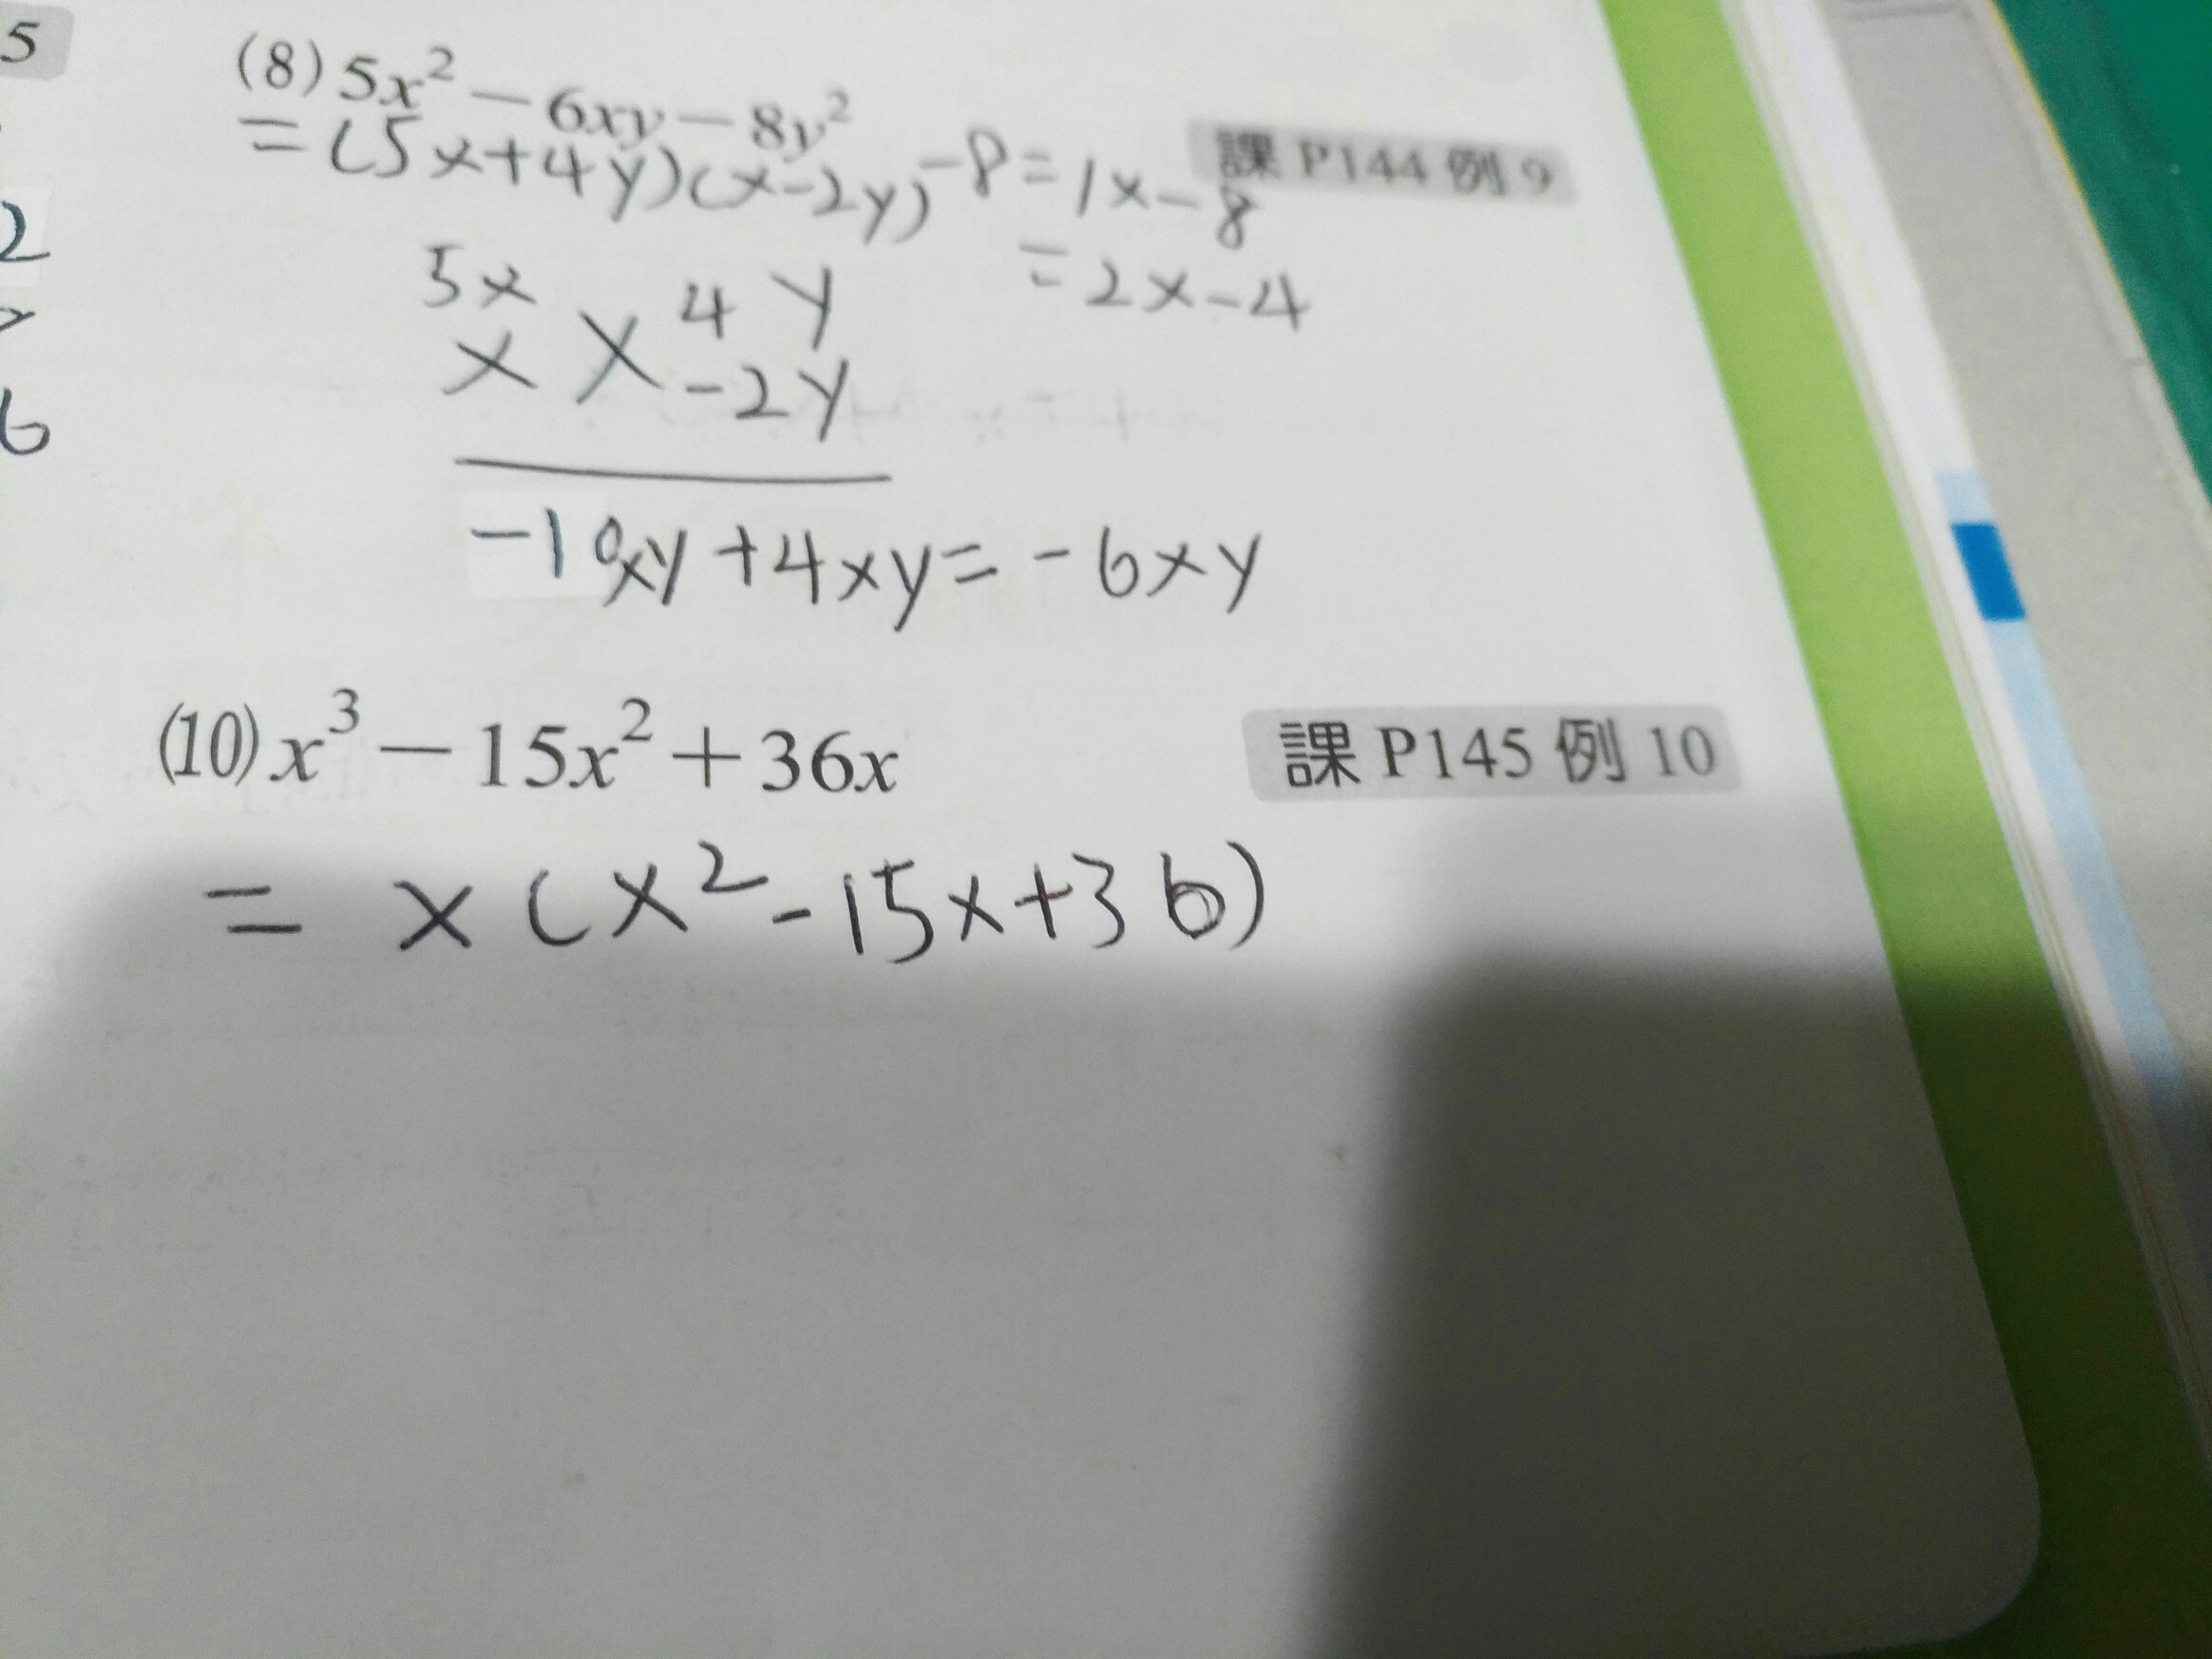 5
(8) 5x² − 6xy − 8y²
課 P144 例 9
= (5x+4y)(x-2y) -8 = 1x-8
= 2x-4
5x 4y
x X -2y
-10xy +4xy = -6xy
2
6
(10) x³ − 15x² + 36x
課 P145 例 10
= x(x²-15x+36)